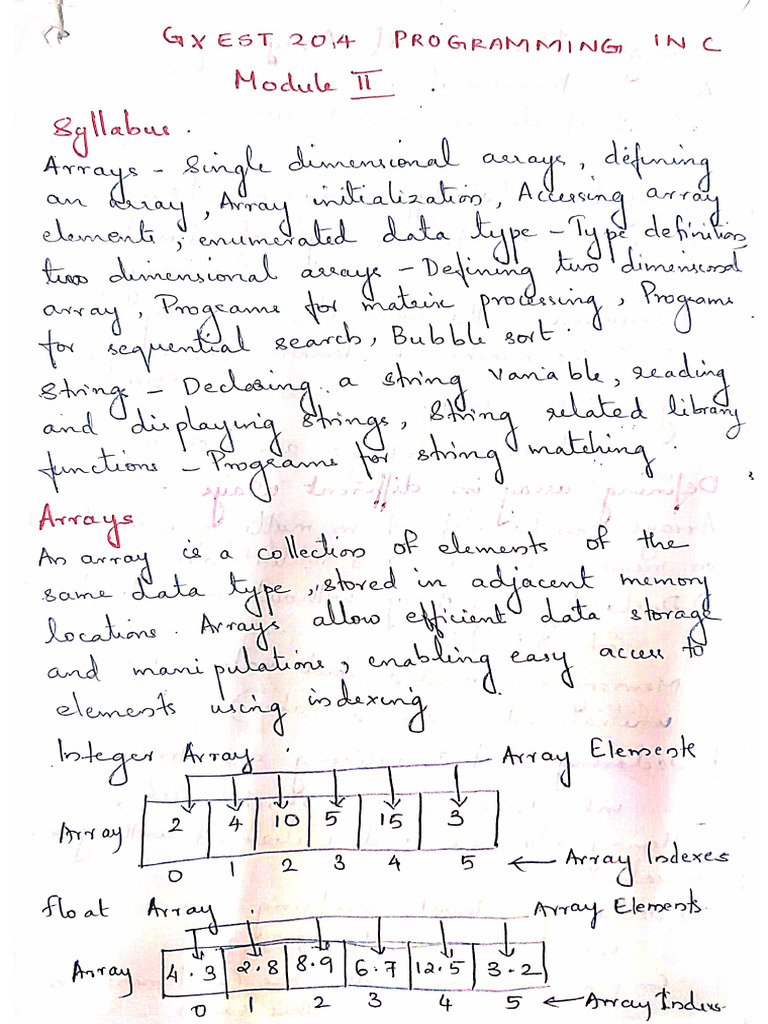 GXEST 204 PROGRAMMING IN C
Module II .
Syllabus .
Arrays - Single dimensional arrays, defining
an array, Array initialization, Accessing array
elements, enumerated data type - Type definition,
two dimensional arrays - Defining two dimensional
array, Programs for matrix processing, Programs
for sequential search, Bubble sort.
Strings - Declaring a string variable, reading
and displaying strings, String related library
functions - Programs for string matching.
Arrays
An array is a collection of elements of the
same data type, stored in adjacent memory
locations. Arrays allow efficient data storage
and manipulations, enabling easy access to
elements using indexing
Integer Array . Array Elements
Array 2 4 10 5 15 3
0 1 2 3 4 5 ← Array Indexes
float Array . Array Elements
Array 4.3 2.8 8.9 6.7 12.5 3.2
0 1 2 3 4 5 ← Array Indexes